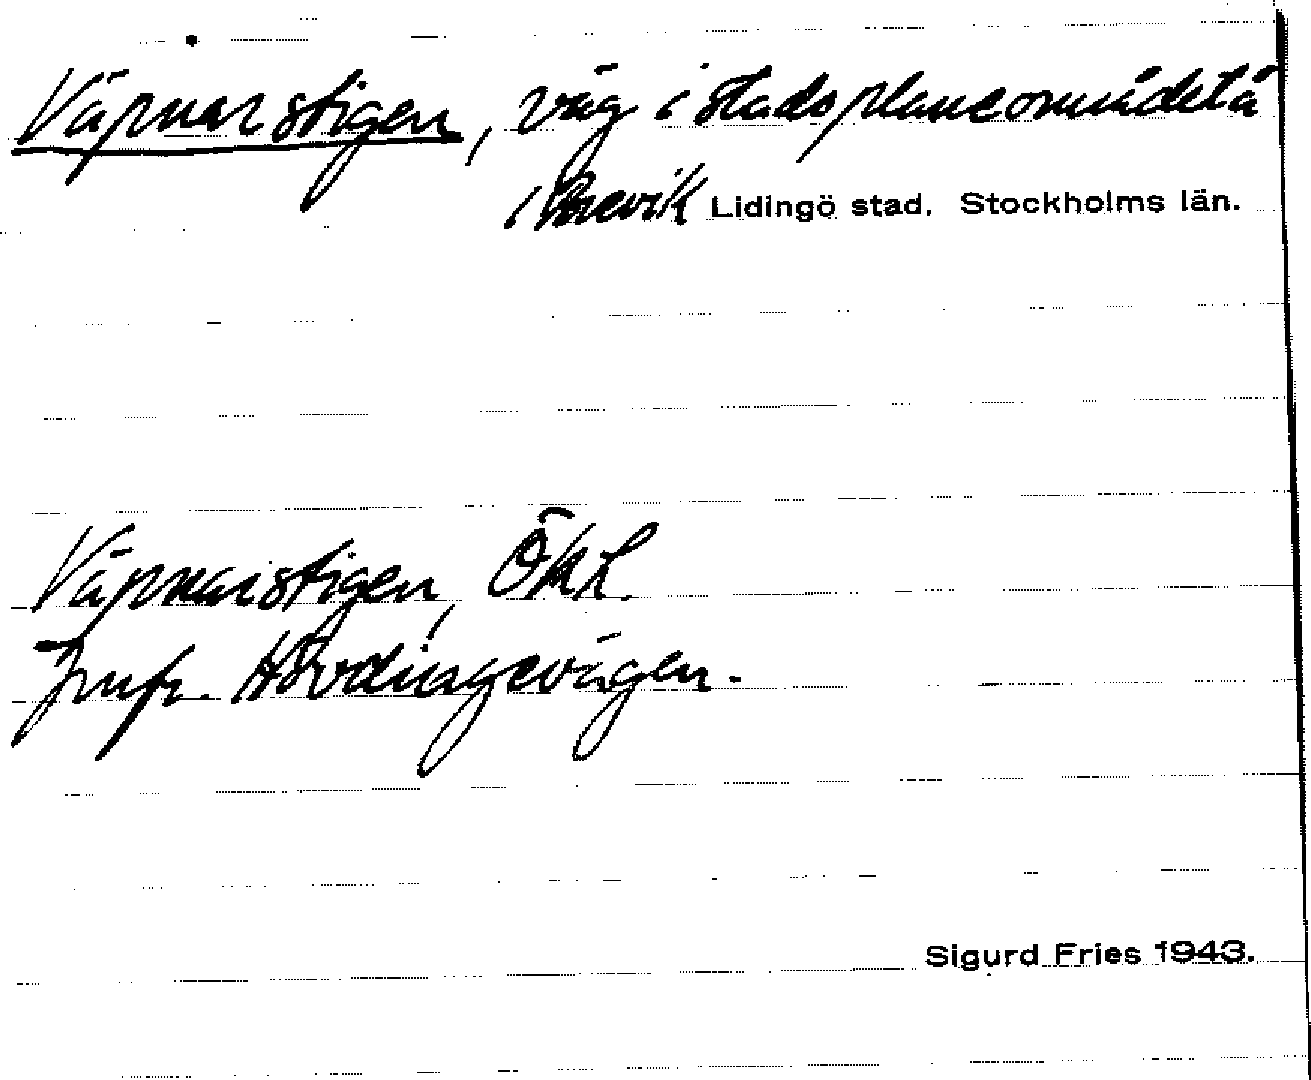 Väpnarstigen, väg i stadsplaneområdetå
i Brevik Lidingö stad. Stockholms län.
Väpnarstigen, ÖKL.
Jmfr. Hövdingevägen.
Sigurd Fries 1943.